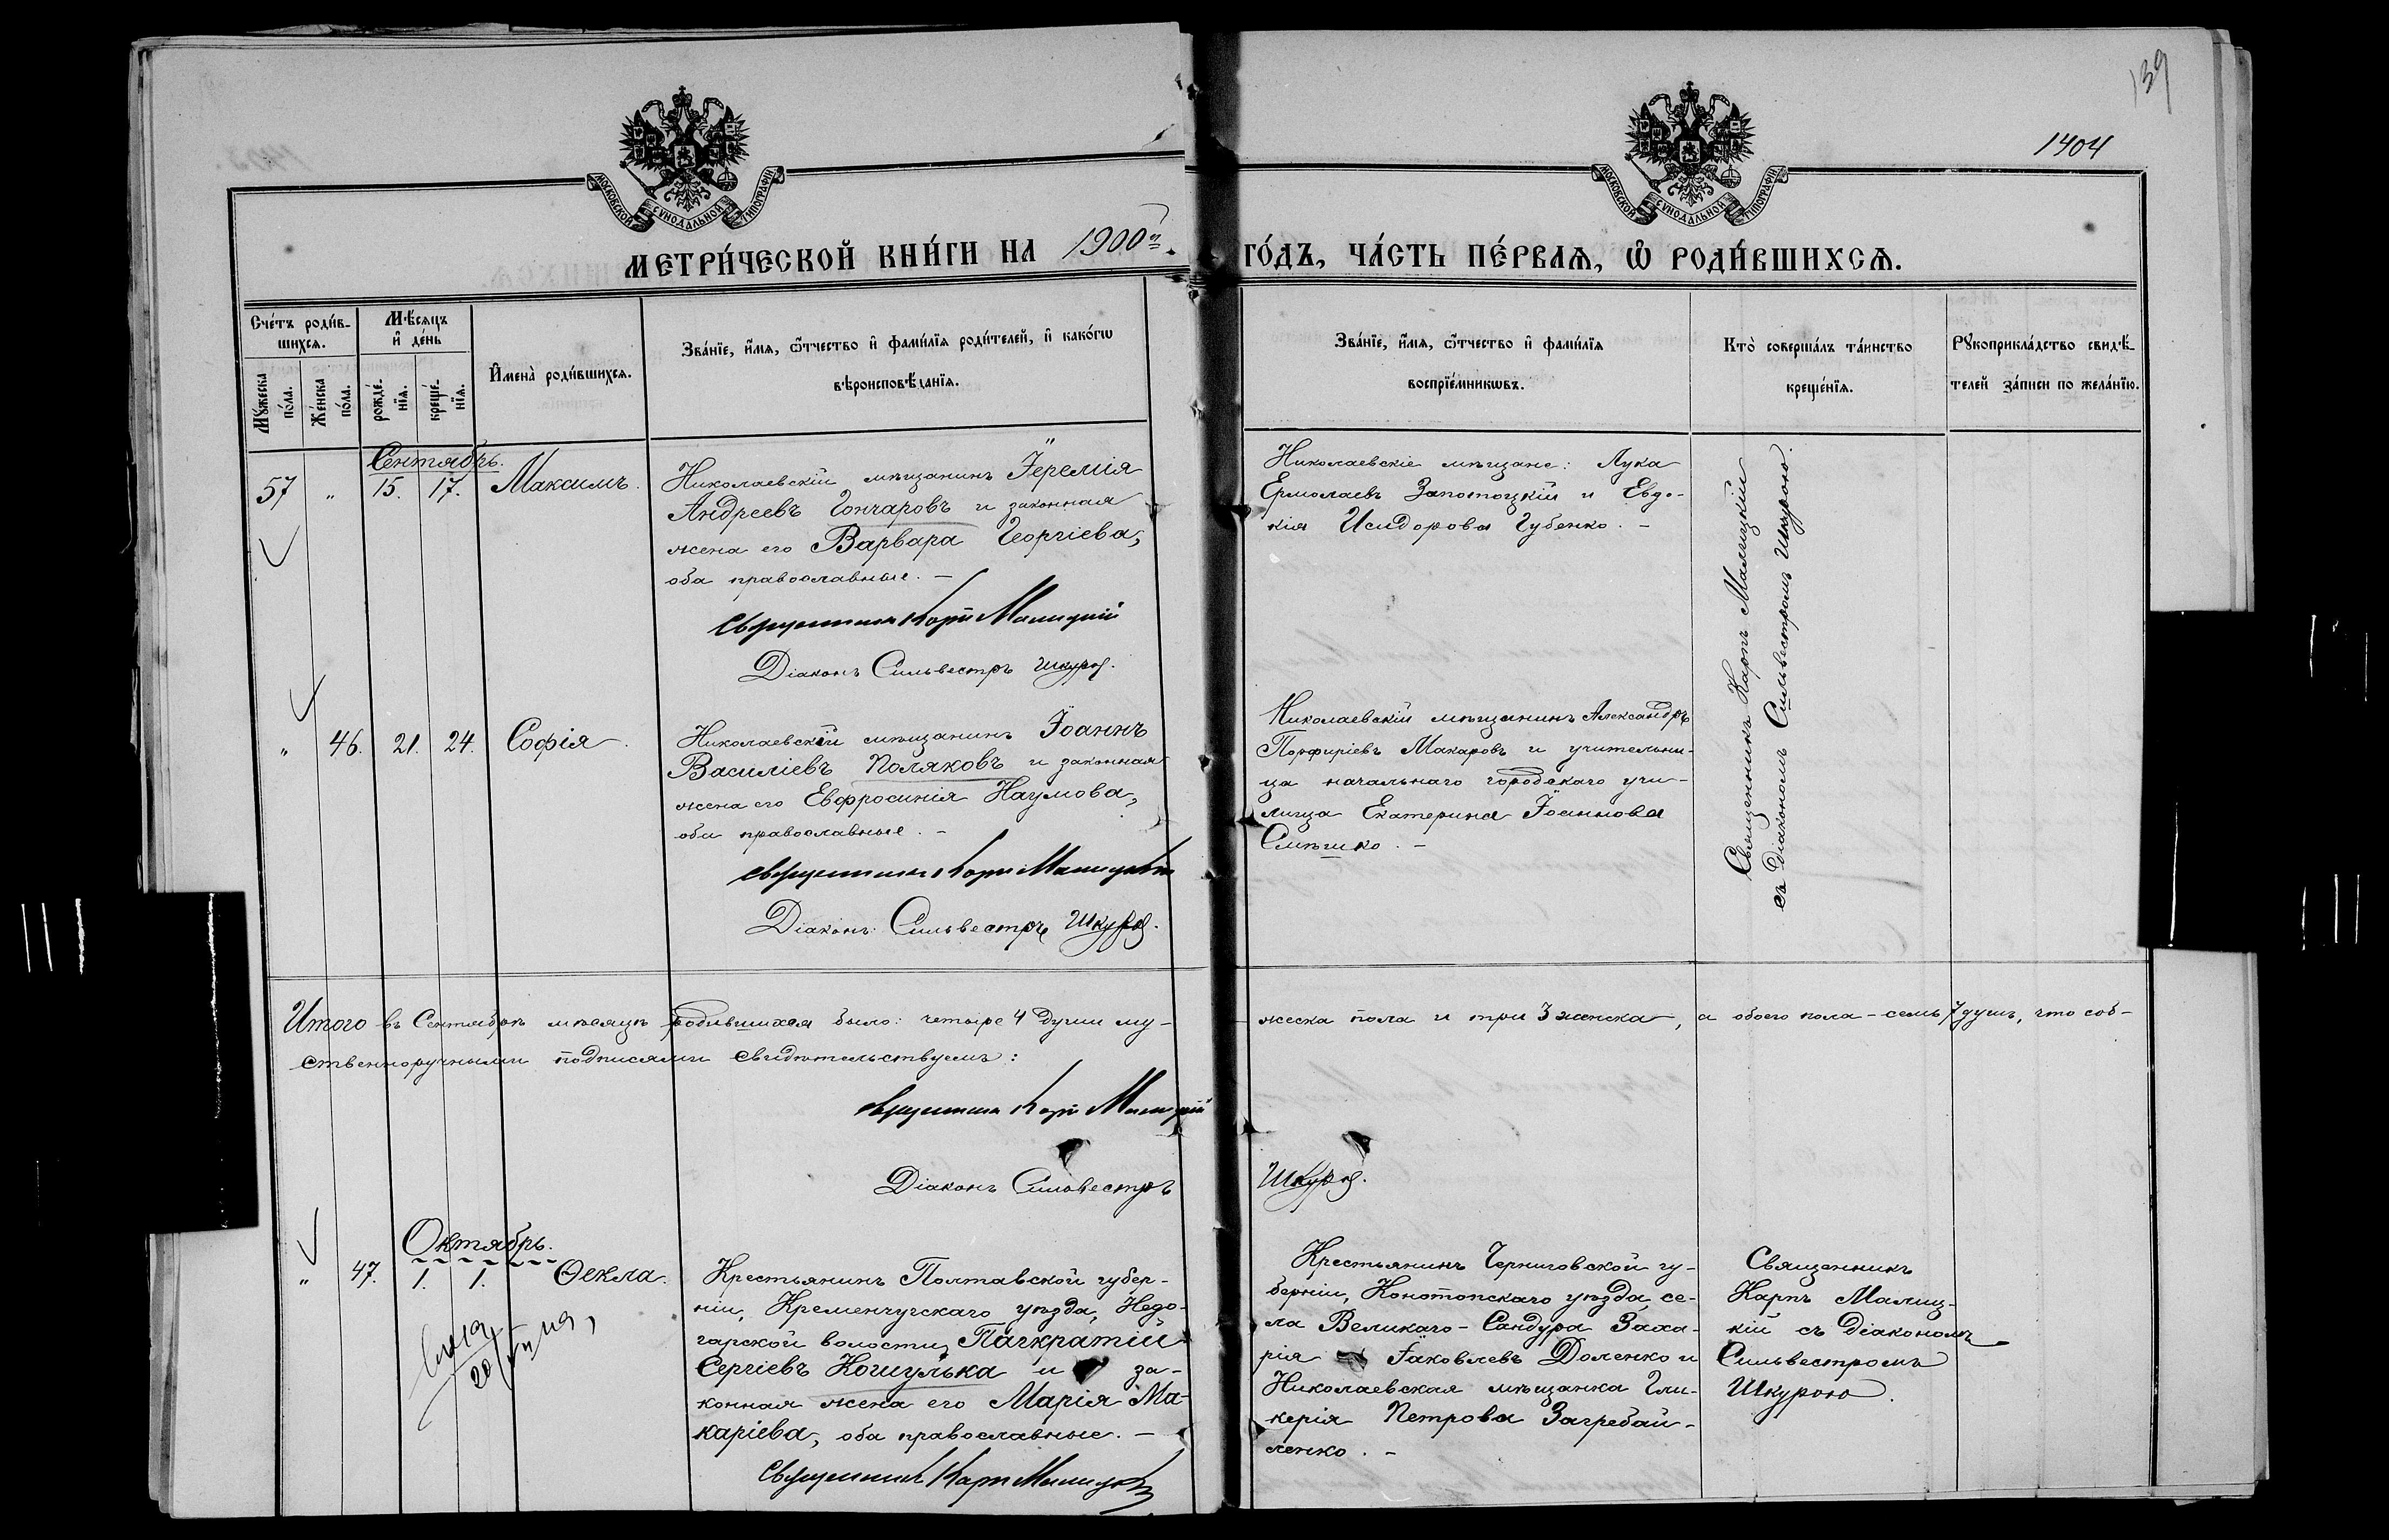 139
1404
МОСКОВСКОЙ СѴНОДАЛЬНОЙ ТИПОГРАФІИ
МОСКОВСКОЙ СѴНОДАЛЬНОЙ ТИПОГРАФІИ
МЕТРИ́ЧЕСКОЙ КНИ́ГИ НА 1900й. ГО́ДЪ, ЧА́СТЬ ПЕ́РВАѦ, Ѡ РОДИ́ВШИХСѦ.
Сче́тъ роди́в-
шихсѧ.
Мѣ́сѧцъ
и҆ де́нь
Мꙋ́жеска
по́ла.
Же́нска
по́ла.
рожде́-
нїѧ.
креще́-
нїѧ.
И҆мена̀ роди́вшихсѧ.
Зва́нїе, и҆́мѧ, ѻ҆́тчество и҆ фами́лїѧ роди́телей, и҆ како́гѡ
вѣроисповѣ́данїѧ.
Зва́нїе, и҆́мѧ, ѻ҆́тчество и҆ фами́лїѧ
воспрїе́мникѡвъ.
Кто̀ соверша́лъ та́инство
креще́нїѧ.
Рꙋкоприкла́дство свидѣ́-
телей за́писи по жела́нїю.
Сентябрь.
57 „ 15. 17. Максимъ.
Николаевскій мѣщанинъ Іеремія
Андреевъ Гончаровъ и законная
жена его Варвара Георгіева,
оба православные. –
Священникъ Карпъ Малицкій
Діаконъ Сильвестръ Шкура.
Николаевскіе мѣщане: Лука
Ермолаевъ Запотоцкій и Евдо-
кія Исидорова Губенко. –
Священникъ Карпъ Малицкій
съ Діакономъ Сильвестромъ Шкурою.
„ 46. 21. 24. Софія.
Николаевскій мѣщанинъ Іоаннъ
Василіевъ Поляковъ и законная
жена его Евфросинія Наумова,
оба православные. –
Священникъ Карпъ Малицкій
Діаконъ Сильвестръ Шкура.
Николаевскій мѣщанинъ Александръ
Порфиріевъ Макаровъ и учительни-
ца начальнаго городскаго учи-
лища Екатерина Іоаннова
Смѣшко. –
Итого въ Сентябрѣ мѣсяцѣ родившихся было: четыре 4 души му-
жеска пола и три 3 женска, а обоего пола – семь 7 душъ, что соб-
ственноручными подписями свидѣтельствуемъ:
Священникъ Карпъ Малицкій
Діаконъ Сильвестръ Шкура.
Октябрь.
„ 47. 1. 1. Ѳекла.
Крестьянинъ Полтавской губер-
ніи, Кременчугскаго уѣзда, Недо-
гарской волости, Панкратій
Сергіевъ Кошулька и за-
конная жена его Марія Ма-
каріева, оба православные. –
Священникъ Карпъ Малицкій
Крестьянинъ Черниговской гу-
берніи, Конотопскаго уѣзда, се-
ла Великаго-Самбура Заха-
рія Іаковлевъ Доленко и
Николаевская мѣщанка Гли-
керія Петрова Загребай-
ленко. –
Священникъ
Карпъ Малиц-
кій съ Діакономъ
Сильвестромъ
Шкурою.